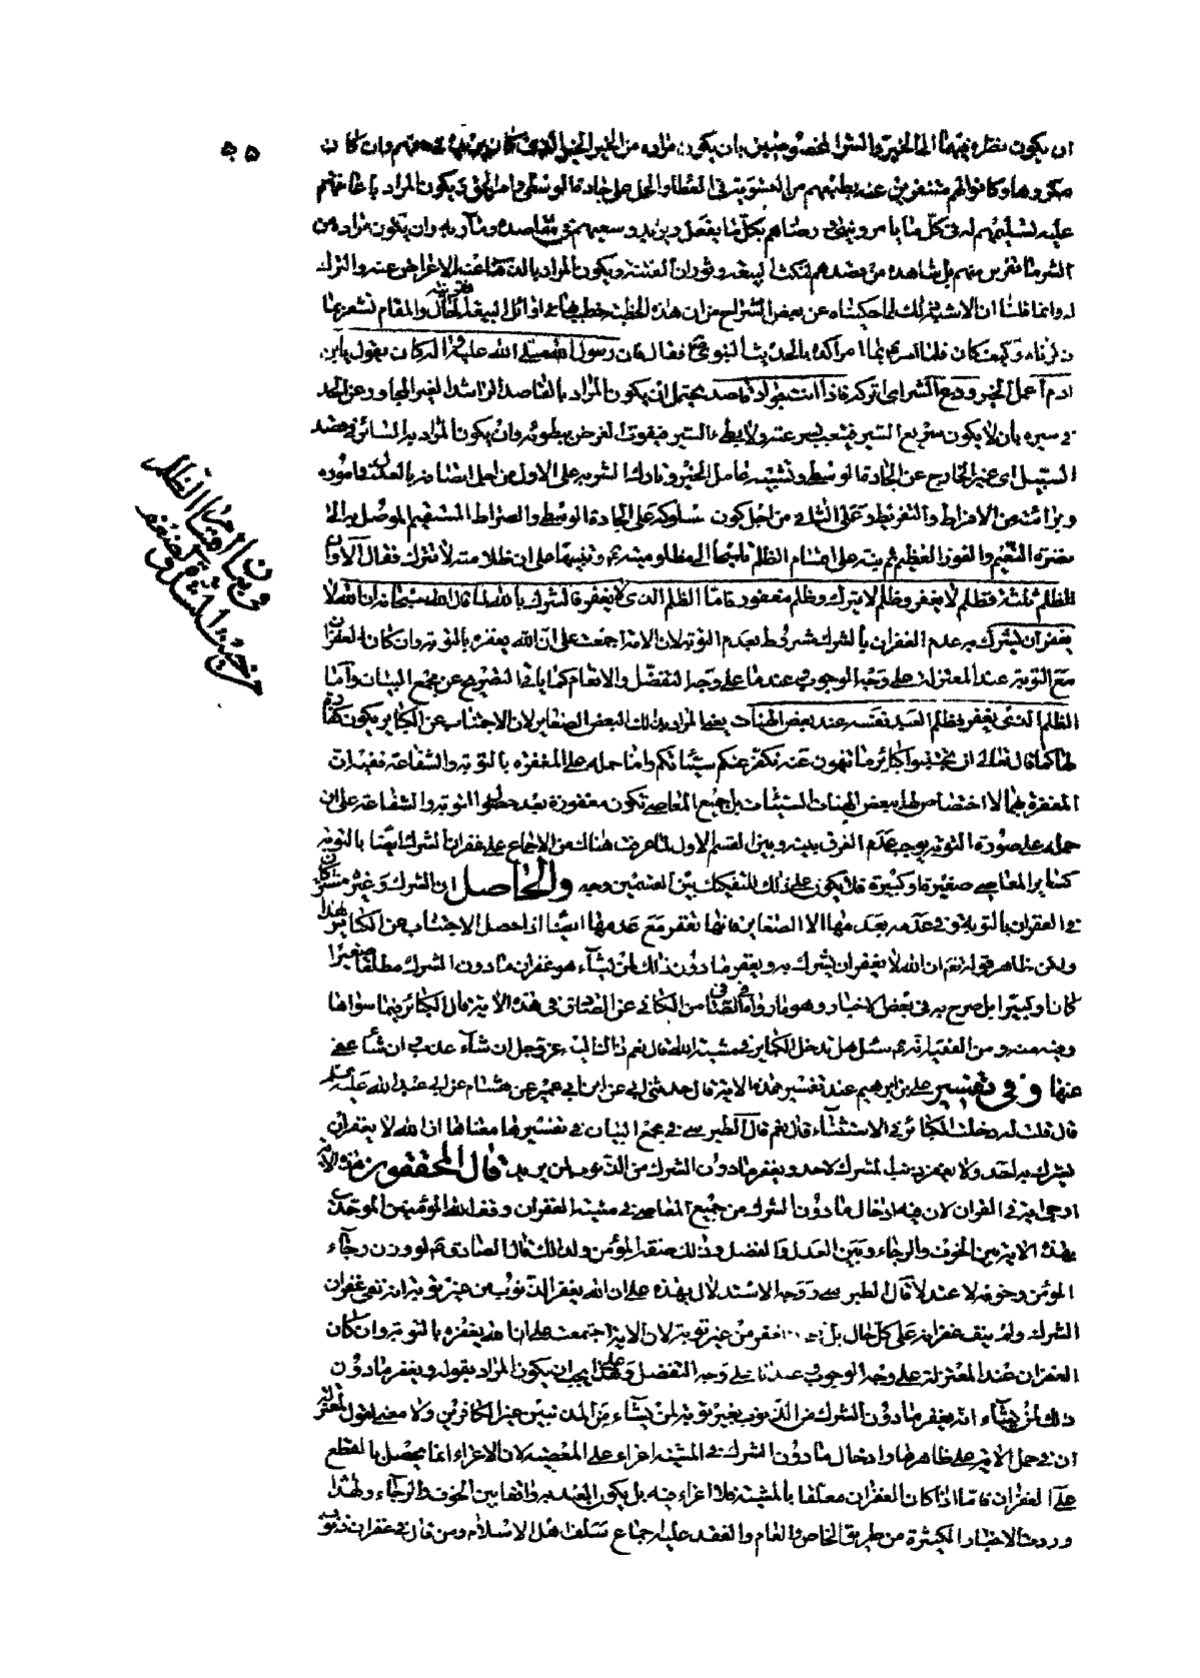 ان يكون نظره فيهما الى الخير والشر المخصوصين بان يكون مراده من الخير الخير الذى كان يريده فى حقهم وان كان
مكروها وكانوا لهم متنفرين عنه بطبعهم من التسوية فى العطاء والحمل على جادة الوسطى وامر الحق ويكون المراد باعانتهم
عليه تسليمهم له فى كل ما يامر وينهى ورضاهم بكل ما يفعل ويريد وسعيهم فى مقاصده ومآربه وان يكون مراده من
الشر ما تفرس منهم بل شاهده من قصدهم لنكث البيعة وثوران الفتنة ويكون المراد بالذهاب عنه الاعراض عنه والترك
له وانما قلنا ان الاشبه ذلك لما حكيناه عن بعض الشراح من ان هذه الخطبة خطب بها فى اوائل البيعة فقرينة الحال والمقام تشعر بهما
وكيف كان فلما امرهم بما امر اكده بالحديث النبوى فقال فان رسول الله صلى الله عليه واله كان يقول يابن
ادم اعمل الخير ودع الشر اى اتركه فاذا انت جواد قاصد يحتمل ان يكون المراد بالقاصد الراشد الغير المجاوز عن الحد
فى سيره بان لا يكون سريع السير فيتعب بسرعته ولا بطىء السير فيفوت الغرض ببطوئه وان يكون المراد به السائر فى قصد
السبيل اى غير الخارج عن الجادة الوسطى وتشبيه عامل الخير وتارك الشر به على الاول من اجل اتصافه بالعدل فى اموره
وبرائته من الافراط والتفريط وعلى الثانى من اجل كون سلوكه على الجادة الوسطى والصراط المستقيم الموصل به الى
نضرة النعيم والفوز العظيم ثم نبه على اقسام الظلم تلميحا الى مظلوميته وتنبيها على ان ظلامته لا تترك فقال الا وان
الظلم ثلثة فظلم لا يغفر وظلم لا يترك وظلم مغفور فاما الظلم الذى لا يغفر فالشرك بالله لما قال الله سبحانه ان الله لا
يغفر ان يشرك به عدم الغفران بالشرك مشروط بعدم التوبة لان الامة اجمعت على ان الله يغفره بالتوبة وان كان الغفران
مع التوبة عند المعتزلة على وجه الوجوب وعندنا على وجه التفضل والانعام كما ياتى التصريح عن مجمع البيان واما
الظلم الذى يغفر فظلم العبد نفسه عند بعض الهنات يعنى المراد بذلك البعض الصغاير لان الاجتناب عن الكباير يكون كفارة
لها كما قال تعالى ان تجتنبوا كبائر ما تنهون عنه نكفر عنكم سيئاتكم واما حمله على المغفرة بالتوبة والشفاعة ففيه ان
المغفرة بهما لا اختصاص لها ببعض الهنات السيئات بل جميع المعاصى تكون مغفورة بعد حصول التوبة والشفاعة على ان
حمله على صورة التوبة يوجب عدم الفرق بينه وبين القسم الاول لما عرفت هناك من الاجماع على غفران الشرك ايضا بالتوبة
كساير المعاصى صغيرة وكبيرة فلا يكون على ذلك للتفكيك بين القسمين وجه والحاصل ان الشرك وغيره مشتركان
فى الغفران بالتوبة وفى عدمه بعدمها الا الصغاير فانها تغفر مع عدمها ايضا اذا حصل الاجتناب عن الكباير هذا
ولكن ظاهر قوله تعالى ان الله لا يغفر ان يشرك به ويغفر ما دون ذلك لمن يشاء هو غفران ما دون الشرك مطلقا صغيرا
كان او كبيرا بل صرح به فى بعض الاخبار وهو ما رواه فى الصافى من الكافى عن الصادق فى هذه الاية قال الكبائر فما سواها
وفيه منه ومن الفقيه انه سئل هل تدخل الكباير فى مشية الله قال نعم ذاك اليه عز وجل ان شاء عذب وان شاء عفى
عنها وفى تفسير على بن ابرهيم عند تفسير هذه الاية قال حدثنى ابى عن ابن ابى عمير عن هشام عن ابى عبد الله عليه السلام
قال قلت له دخلت الكبائر فى الاستثناء قال نعم قال الطبرسى فى مجمع البيان فى تفسيرها معناها ان الله لا يغفر ان
يشرك به احد ولا يغفر ذنب الشرك لاحد ويغفر ما دون الشرك من الذنوب لمن يريد قال المحققون هذه الاية
ارجى اية فى القران لان فيه ادخال ما دون الشرك من جميع المعاصى فى مشية الغفران وقف الله المؤمنين الموحدين
بهذه الاية بين الخوف والرجاء وبين العدل والفضل وذلك صفة المؤمن ولذلك قال الصادق لو وزن رجاء
المؤمن وخوفه لاعتدلا قال الطبرسى ووجه الاستدلال بهذه على ان الله يغفر الذنوب من غير توبة انه نفى غفران
الشرك ولم ينف غفرانه على كل حال بل نفى ان يغفر من غير توبة لان الامة اجتمعت على ان الله يغفره بالتوبة وان كان
الغفران عند المعتزلة على وجه الوجوب وعندنا على وجه التفضل وعلى هذا يجب ان يكون المراد بقوله ويغفر ما دون
ذلك لمن يشاء انه يغفر ما دون الشرك من الذنوب بغير توبة لمن يشاء من المذنبين غير الكافرين ولا معنى لقول المعتزلة
ان فى حمل الاية على ظاهرها وادخال ما دون الشرك فى المشية اغراء على المعصية لان الاغراء انما يحصل بالقطع
على الغفران فاما اذا كان الغفران معلقا بالمشية فلا اغراء فيه بل يكون العبد به واقفا بين الخوف والرجاء وبهذا
وردت الاخبار الكثيرة من طريق الخاص والعام وانعقد عليه اجماع سلف اهل الاسلام ومن قال فى غفران ذنوب